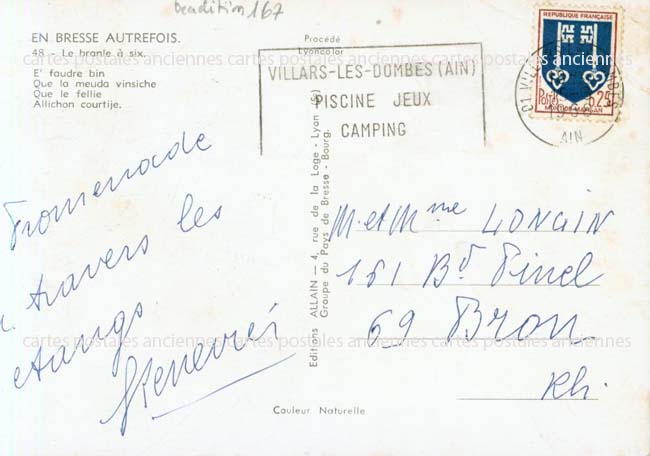 tradition 167
EN BRESSE AUTREFOIS.
48 - Le branle à six.
E' faudre bin
Que la meuda vinsiche
Que le fellie
Allichon courtije.
Procédé
Lyoncolor
VILLARS-LES-DOMBES (AIN)
PISCINE JEUX
CAMPING
REPUBLIQUE FRANÇAISE
Postes 0,25
MONT-DE-MARSAN
01 VILLARS
AIN
cartes postales anciennes cartes postales anciennes cartes postales anciennes
Promenade
à travers les
étangs
Editions ALLAIN — 4, rue de la Loge - Lyon (5e)
Groupe du Pays de Bresse - Bourg.
M. et Mme LONGIN
161 Bd Pinel
69 Bron
Rh.
cartes postales anciennes cartes postales anciennes cartes postales anciennes
Couleur Naturelle